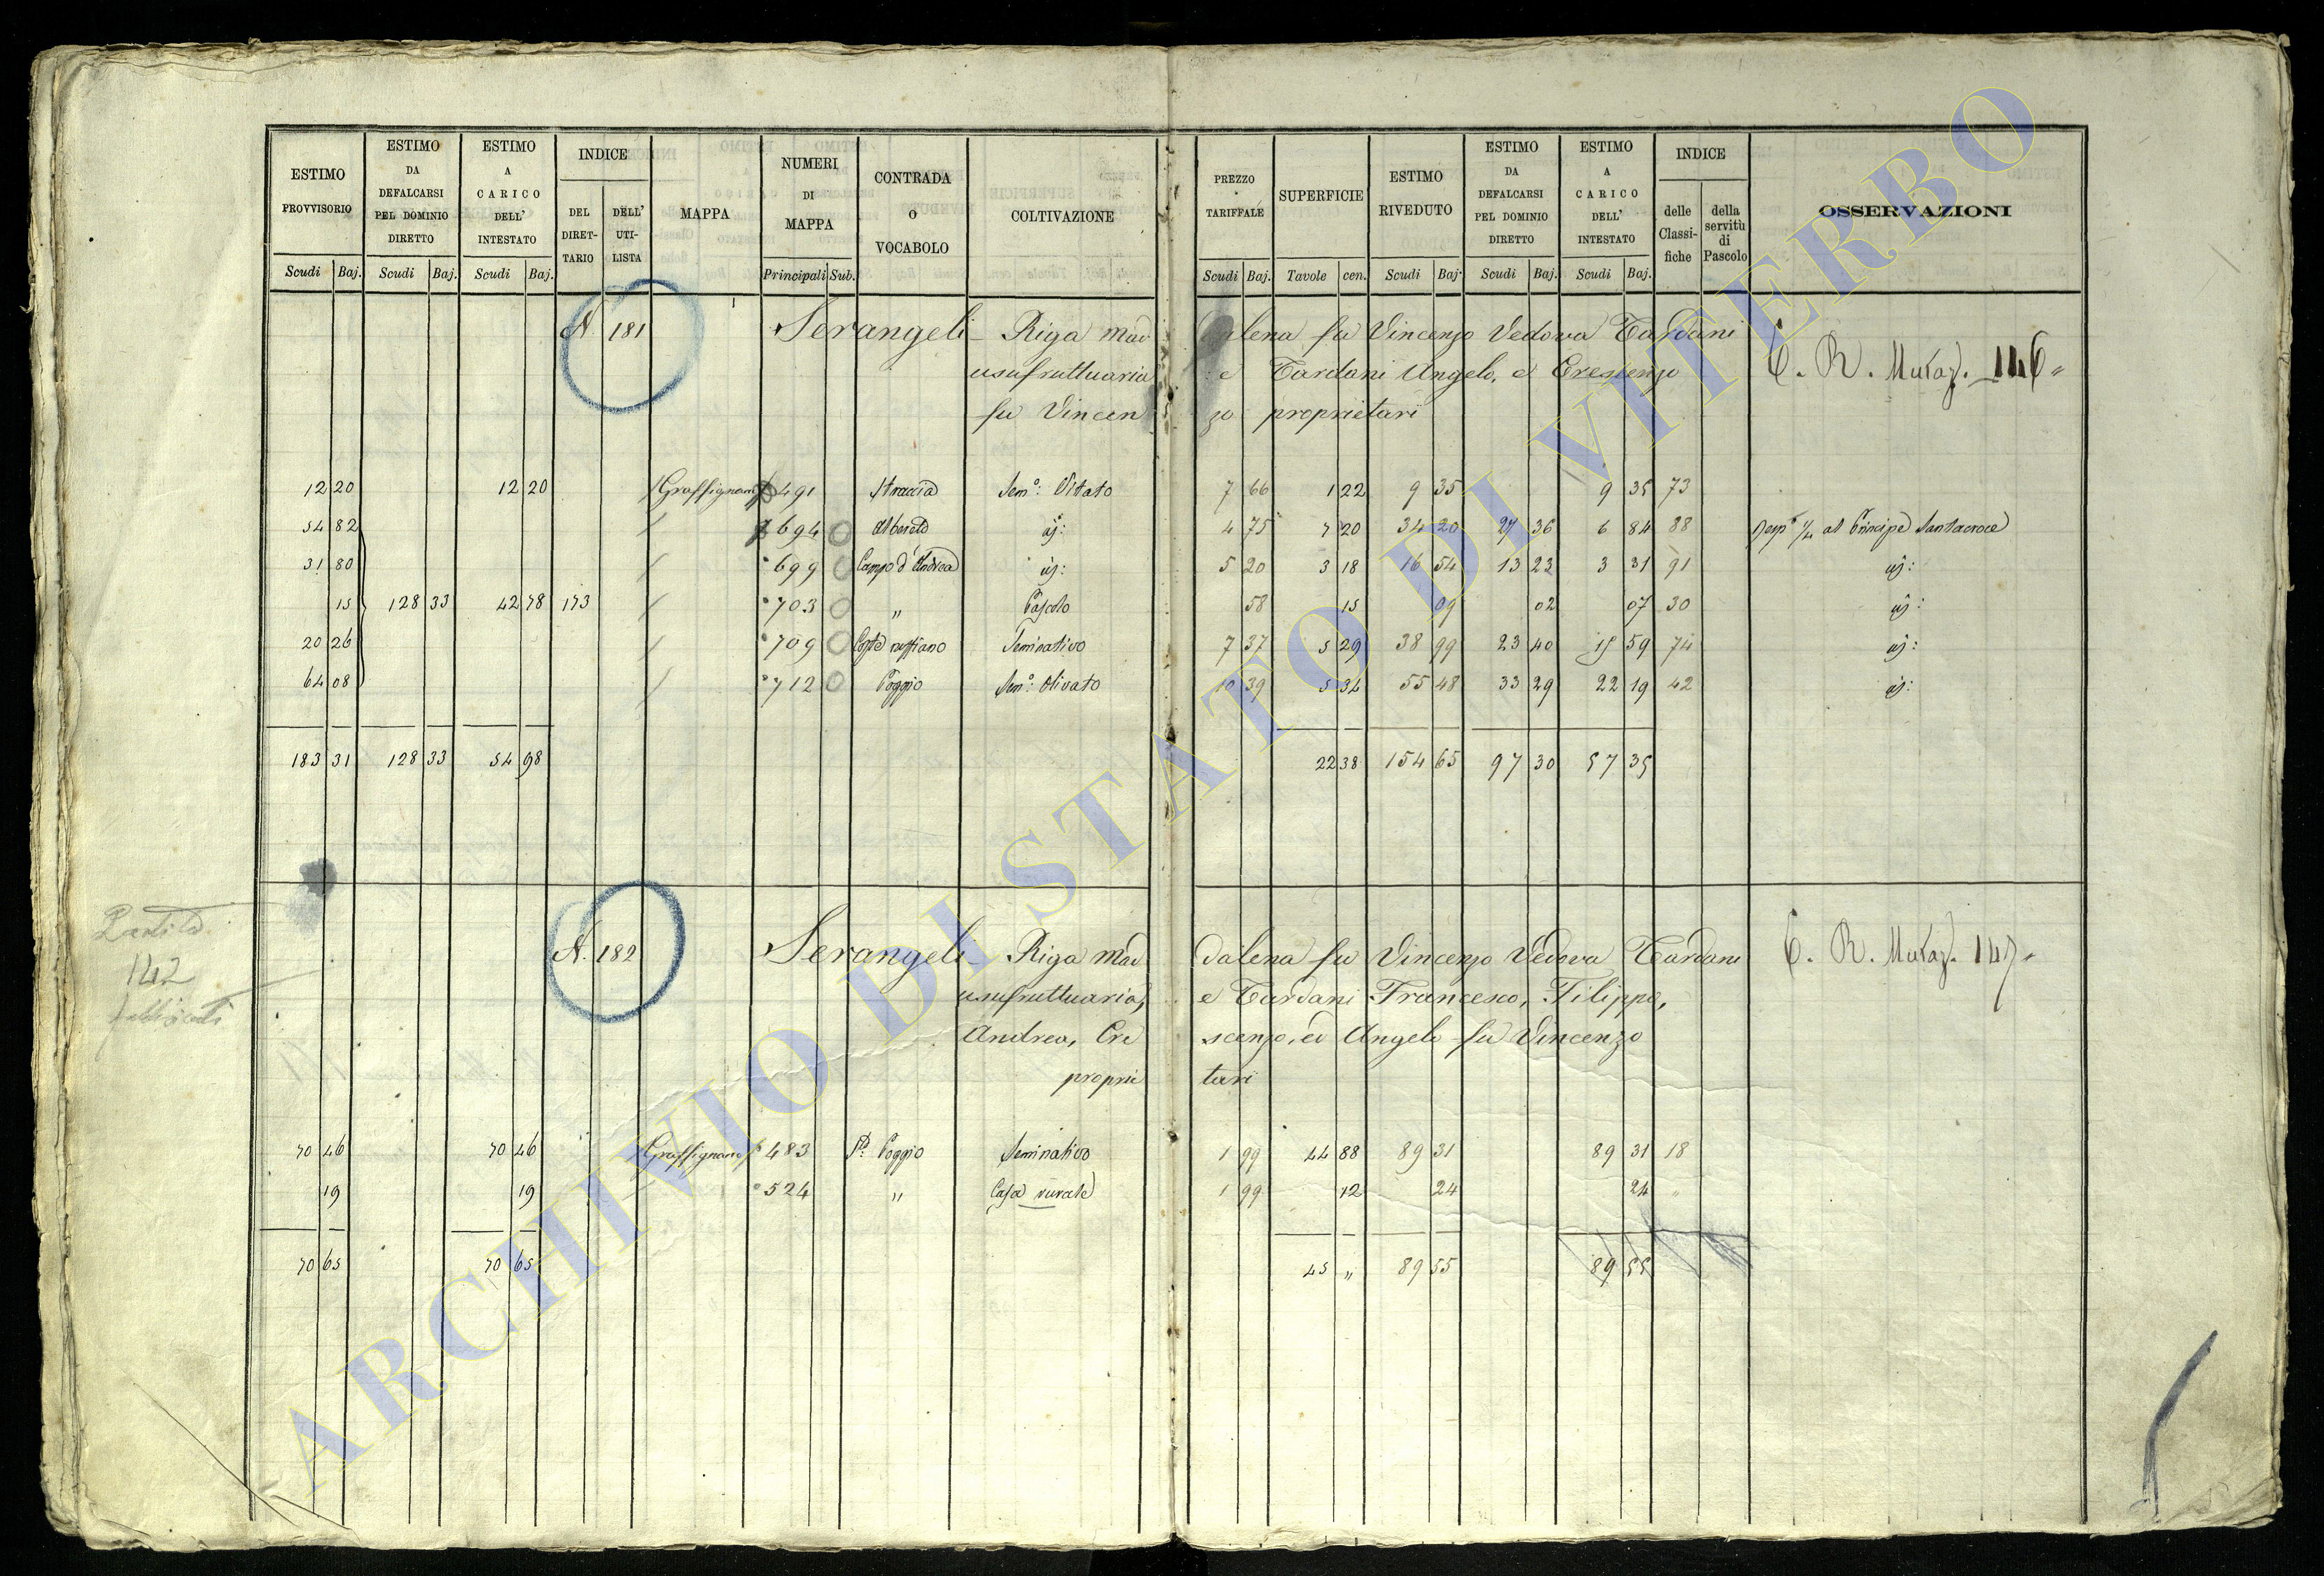 ESTIMO PROVVISORIO | ESTIMO DA DEFALCARSI PEL DOMINIO DIRETTO | ESTIMO A CARICO DELL' INTESTATO | INDICE | MAPPA | NUMERI DI MAPPA | CONTRADA O VOCABOLO | COLTIVAZIONE | PREZZO TARIFFALE | SUPERFICIE | ESTIMO RIVEDUTO | ESTIMO DA DEFALCARSI PEL DOMINIO DIRETTO | ESTIMO A CARICO DELL' INTESTATO | INDICE | OSSERVAZIONI
DEL DIRET-TARIO | DELL' UTI-LISTA | delle Classi-fiche | della servitù di Pascolo
Scudi Baj. | Scudi Baj. | Scudi Baj. | Principali Sub. | Scudi Baj. | Tavole cen. | Scudi Baj. | Scudi Baj. | Scudi Baj.
N. 181 Serangeli Riga Mad dalena fu Vincenzo Vedova Tardani
usufruttuaria e Tardani Angelo, e Crescenzo C. R. Mutaz. 146
fu Vincen zo proprietari
12 20 12 20 Graffignano 491 Straccia Sem.º: Vitato 7 66 1 22 9 35 9 35 73
54 82 694 Albereto id: 4 75 7 20 34 20 27 36 6 84 88 al Principe Santacroce
31 80 699 Campo d'Andrea id: 5 20 3 18 16 54 13 23 3 31 91 id:
15 128 33 42 78 173 703 " Pascolo 58 15 09 02 07 30 id:
20 26 709 Seminativo 7 37 5 29 38 99 23 40 15 59 74 id:
64 08 712 Poggio Sem.º: Olivato 10 39 5 34 55 48 33 29 22 19 42 id:
183 31 128 33 54 98 22 38 154 65 97 30 57 35
142
N. 182 Serangeli Riga Mad dalena fu Vincenzo Vedova Tardani C. R. Mutaz. 147
usufruttuaria, e Tardani Francesco, Filippo,
Andrea, Cre scenzo, ed Angelo fu Vincenzo
proprie tari
70 46 70 46 Graffignano 483 Poggio Seminativo 1 99 44 88 89 31 89 31 18
19 19 524 " Casa rurale 1 99 12 24 24 "
70 65 70 65 45 " 89 55 89 55
ARCHIVIO DI STATO DI VITERBO